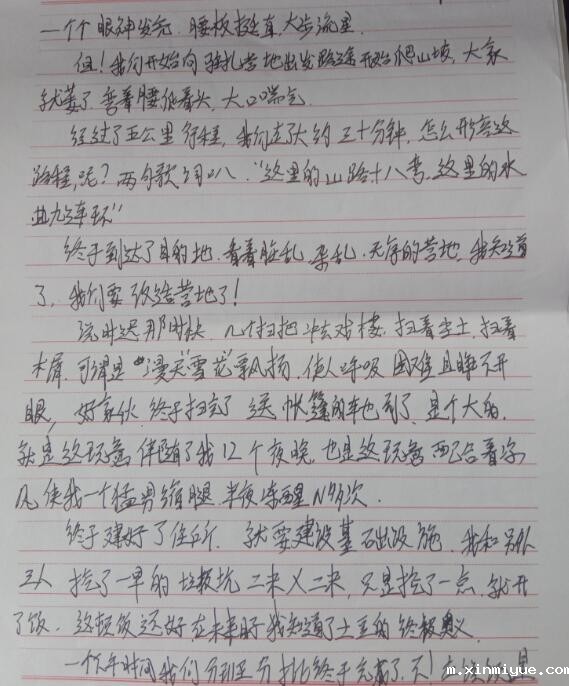 一个个眼神发光，腰板挺直，大步流星
但！我们开始向驻扎营地出发路途开始爬山坡，大家
就萎了 弯着腰低着头，大口喘气
经过了五公里行程，我们走了大约三十分钟，怎么形容这
路程呢？两句歌词叭，“这里的山路十八弯，这里的水
路九连环”
终于到达了目的地，看着脏乱、杂乱、无序的营地，我知道
了，我们要改造营地了！
说时迟那时快，几个扫把冲去戏楼，扫着尘土，扫着
木屑，可谓是“漫天”雪花飘扬，使人呼吸困难且睁不开
眼，好家伙，终于扫完了 送帐篷的车也到了，是个大的，
就是这玩意伴随了我12个夜晚，也是这玩意配合着寒
风使我一个猛男缩腿，半夜冻醒N多次
终于建好了住所，就要建设基础设施，我和另外
三人挖了一早的垃圾坑二米乂二米，只是挖了一点，就开
了饭，这顿饭还好在未来时我知道了土豆的终极奥义
一个下午时间我们分班分批终于完成了，
m.xinmiyue.com